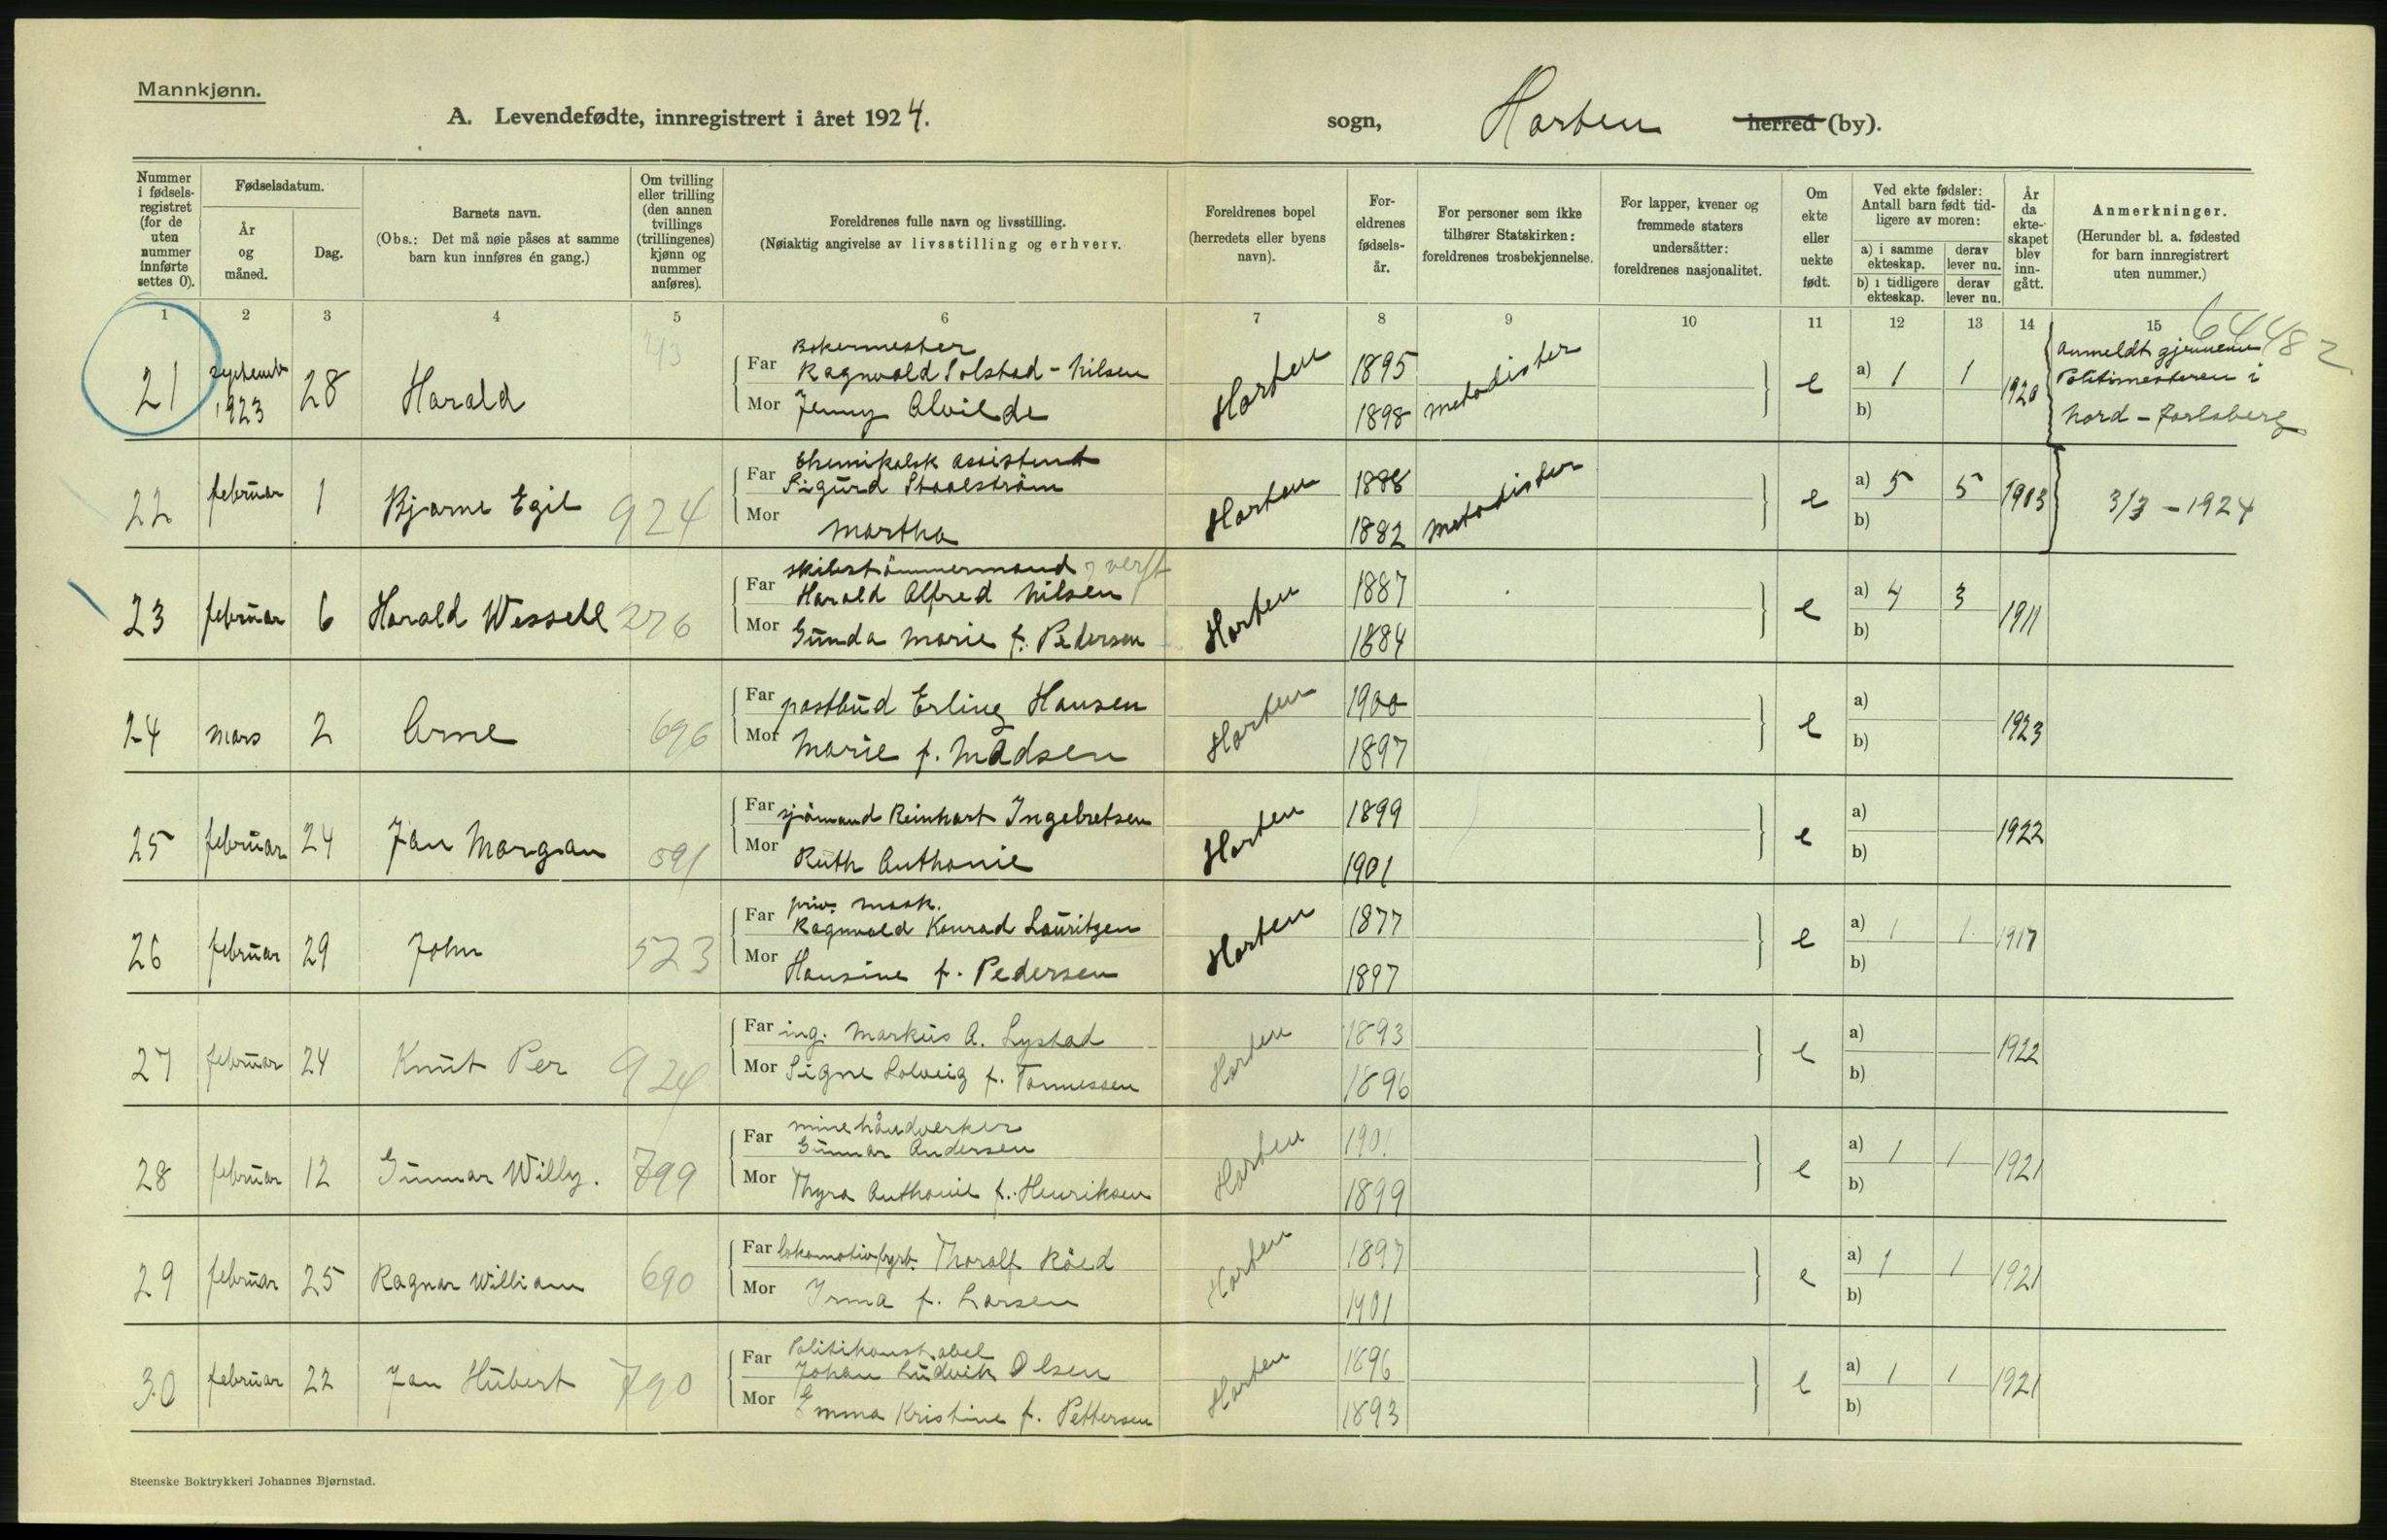 Mannkjønn.
A. Levendefødte, innregistrert i året 1924.
sogn, Horten herred (by).
Nummer i fødsels-registret (for de uten nummer innførte settes 0).
Fødselsdatum.
År og måned.
Dag.
Barnets navn.
(Obs.: Det må nøie påses at samme barn kun innføres én gang.)
Om tvilling eller trilling (den annen tvillings (trillingenes) kjønn og nummer anføres).
Foreldrenes fulle navn og livsstilling.
(Nøiaktig angivelse av livsstilling og erhverv.
Foreldrenes bopel (herredets eller byens navn).
For-eldrenes fødsels-år.
For personer som ikke tilhører Statskirken: foreldrenes trosbekjennelse.
For lapper, kvener og fremmede staters undersåtter: foreldrenes nasjonalitet.
Om ekte eller uekte født.
Ved ekte fødsler: Antall barn født tid-ligere av moren:
a) i samme ekteskap.
derav lever nu.
b) i tidligere ekteskap.
derav lever nu.
År da ekte-skapet blev inn-gått.
Anmerkninger.
(Herunder bl. a. fødested for barn innregistrert uten nummer.)
1 2 3 4 5 6 7 8 9 10 11 12 13 14 15
6448 2
243
21 septemb 1923 28 Harald
Far Bokermester
Ragnvald Solstad - Nilsen
Mor Jenny Alvilde
Horten 1895 1898 metodister e a) 1 1 b) 1920
anmeldt gjennem
Politimesteren i
Nord - Jarlsberg
22 februar 1 Bjarne Egil 924
Far Chemikalsk assistent
Sigurd Staalström
Mor Martha
Horten 1888 1882 metodister e a) 5 5 b) 1913 3/3 - 1924
23 februar 6 Harald Wessell 276
Far skibstømmermand verft
Harald Alfred Nilsen
Mor Gunda Marie f. Pedersen
Horten 1887 1884 e a) 4 3 b) 1911
24 mars 2 Arne 696
Far postbud Erling Hansen
Mor Marie f. Madsen
Horten 1900 1897 e a) b) 1923
25 februar 24 Jan Morgan 591
Far sjømand Reinhart Ingebretsen
Mor Ruth Anthonie
Horten 1899 1901 e a) b) 1922
26 februar 29 John 523
Far priv. mask.
Ragnvald Konrad Lauritzen
Mor Hansine f. Pedersen
Horten 1877 1897 e a) 1 1 b) 1917
27 februar 24 Knut Per 924
Far ing. Markus A. Lystad
Mor Signe Solveig f. Tønnessen
Horten 1893 1896 e a) b) 1922
28 februar 12 Gunnar Willy. 799
Far minehåndverker
Gunnar Andersen
Mor Thyra Anthonie f. Henriksen
Horten 1901 1899 e a) 1 1 b) 1921
29 februar 25 Ragnar William 690
Far lokomotivfyrb. Thoralf Röed
Mor Irma f. Larsen
Horten 1897 1901 e a) 1 1 b) 1921
30 februar 22 Jan Hubert 790
Far Politikonstabel
Johan Ludvik Olsen
Mor Emma Kristine f. Pettersen
Horten 1896 1893 e a) 1 1 b) 1921
Steenske Boktrykkeri Johannes Bjørnstad.